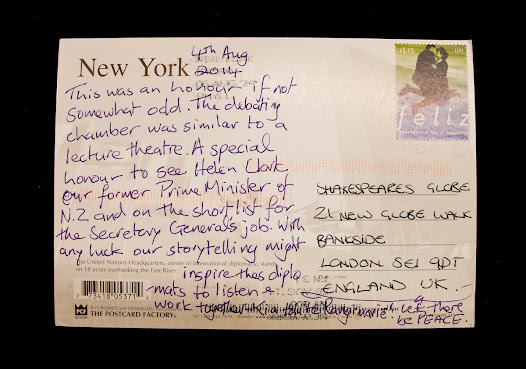 New York
4th Aug
2014
This was an honour if not
somewhat odd. The debating
chamber was similar to a
lecture theatre. A special
honour to see Helen Clark
our former Prime Minister of
N.Z and on the shortlist for
the Secretary General's job. With
any luck our storytelling might
inspire these diplo
mats to listen &
work together. Kia tau te Rangimarie. Let there
be PEACE.
The United Nations Headquarters, center of international diplomacy, stands
on 18 acres overlooking the East River.
7 73418 05371
© PUBLISHED and DISTRIBUTED
THE POSTCARD FACTORY
$1.15
UN
feliz
International Day of Happiness
SHAKESPEARES GLOBE
21 NEW GLOBE WALK
BANKSIDE
LONDON SE1 9DT
ENGLAND UK.